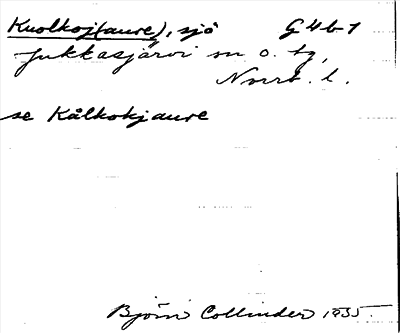 Kuolkoj(aure), sjö G4b1
Jukkasjärvi sn o. tg,
Norrb. l.
se Kålkokjaure
Björn Collinder 1935.